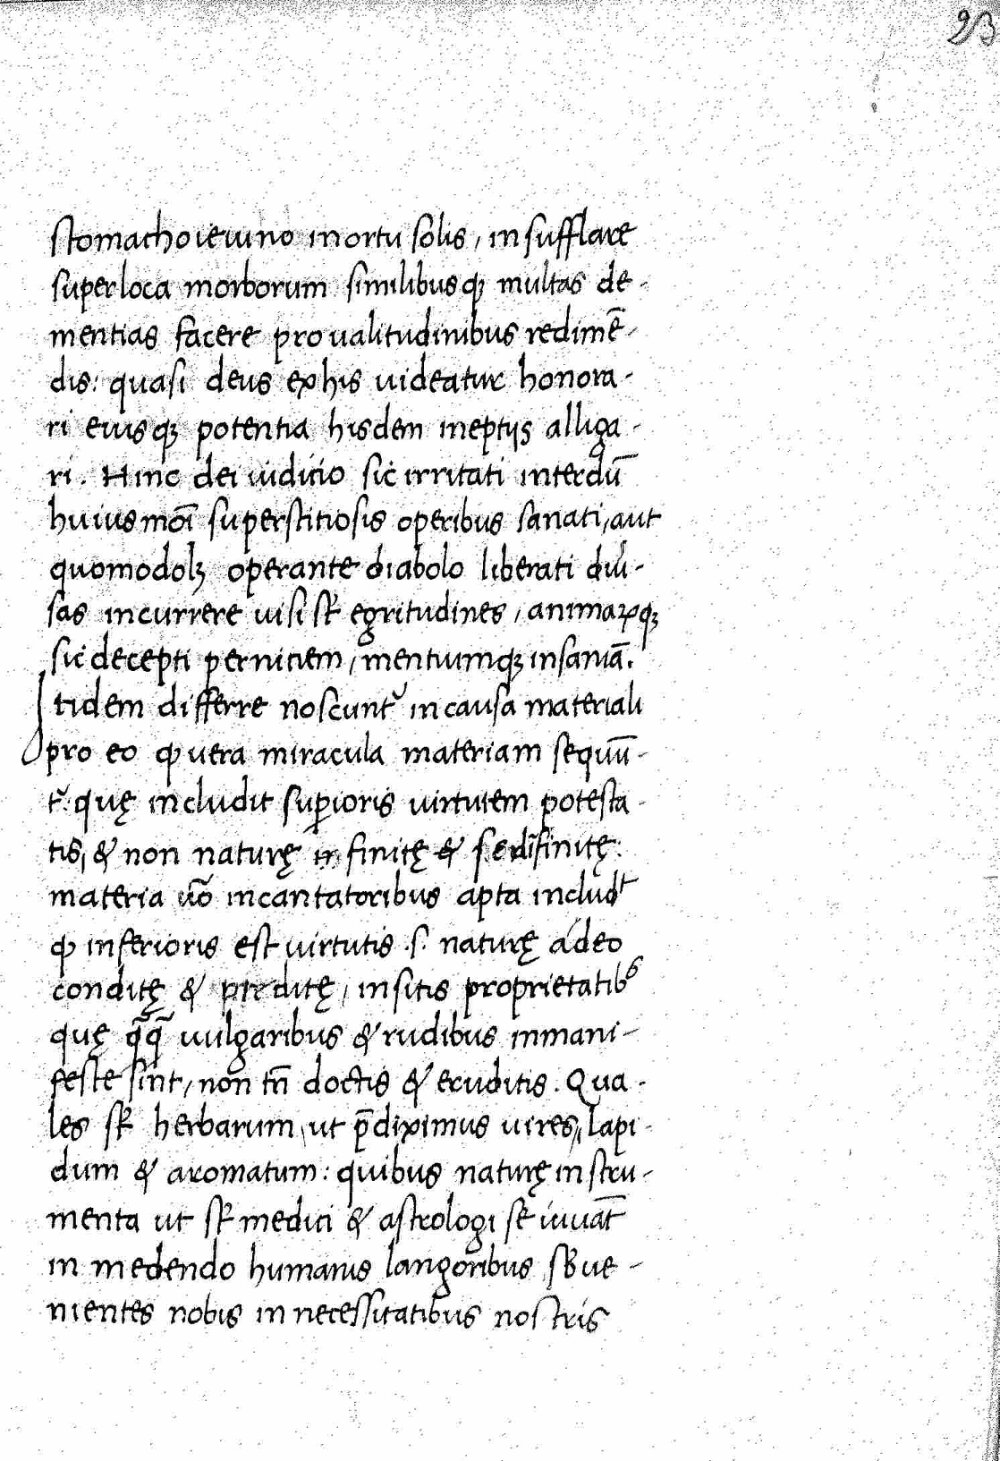 23
stomacho ieiuno in ortu solis, insufflare
super loca morborum similibusqꝫ multas de-
mentias facere pro ualitudinibus redimē-
dis: quasi deus ex his uideatur honora-
ri eiusqꝫ potentia hisdem ineptijs alliga-
ri. Hinc dei iuditio sic irritati interdū
huiusmōi superstitiosis operibus sanati, aut
quomodolꝫ operante diabolo liberati diu̓-
sas incurrere uisi st̄ egritudines, animaꝝqꝫ
sic decepti pernitiem, mentiumqꝫ insaniā.
Itidem differre noscunt᷑ in causa materiali
pro eo ꝙ uera miracula materiam sequū-
t᷑: quę includit suꝑioris uirtutem potesta-
tis, & non naturę in finitę & sed īfinitę:
materia u̓o incantatoribus apta includᵗ
ꝙ inferioris est uirtutis .s. naturę adeo
conditę & preditę, insitis proprietatibꝰ
quę q̄q̄ uulgaribus & rudibus inmani-
feste sint, non tn̄ doctis & eruditis. Qua-
les st̄ herbarum, ut p̄diximus uires, lapi-
dum & aromatum: quibus naturę instru-
menta ut st̄ medici & astrologi se iuuāt
in medendo humanis langoribus, sb̄ue-
nientes nobis in necessitatibus nostris